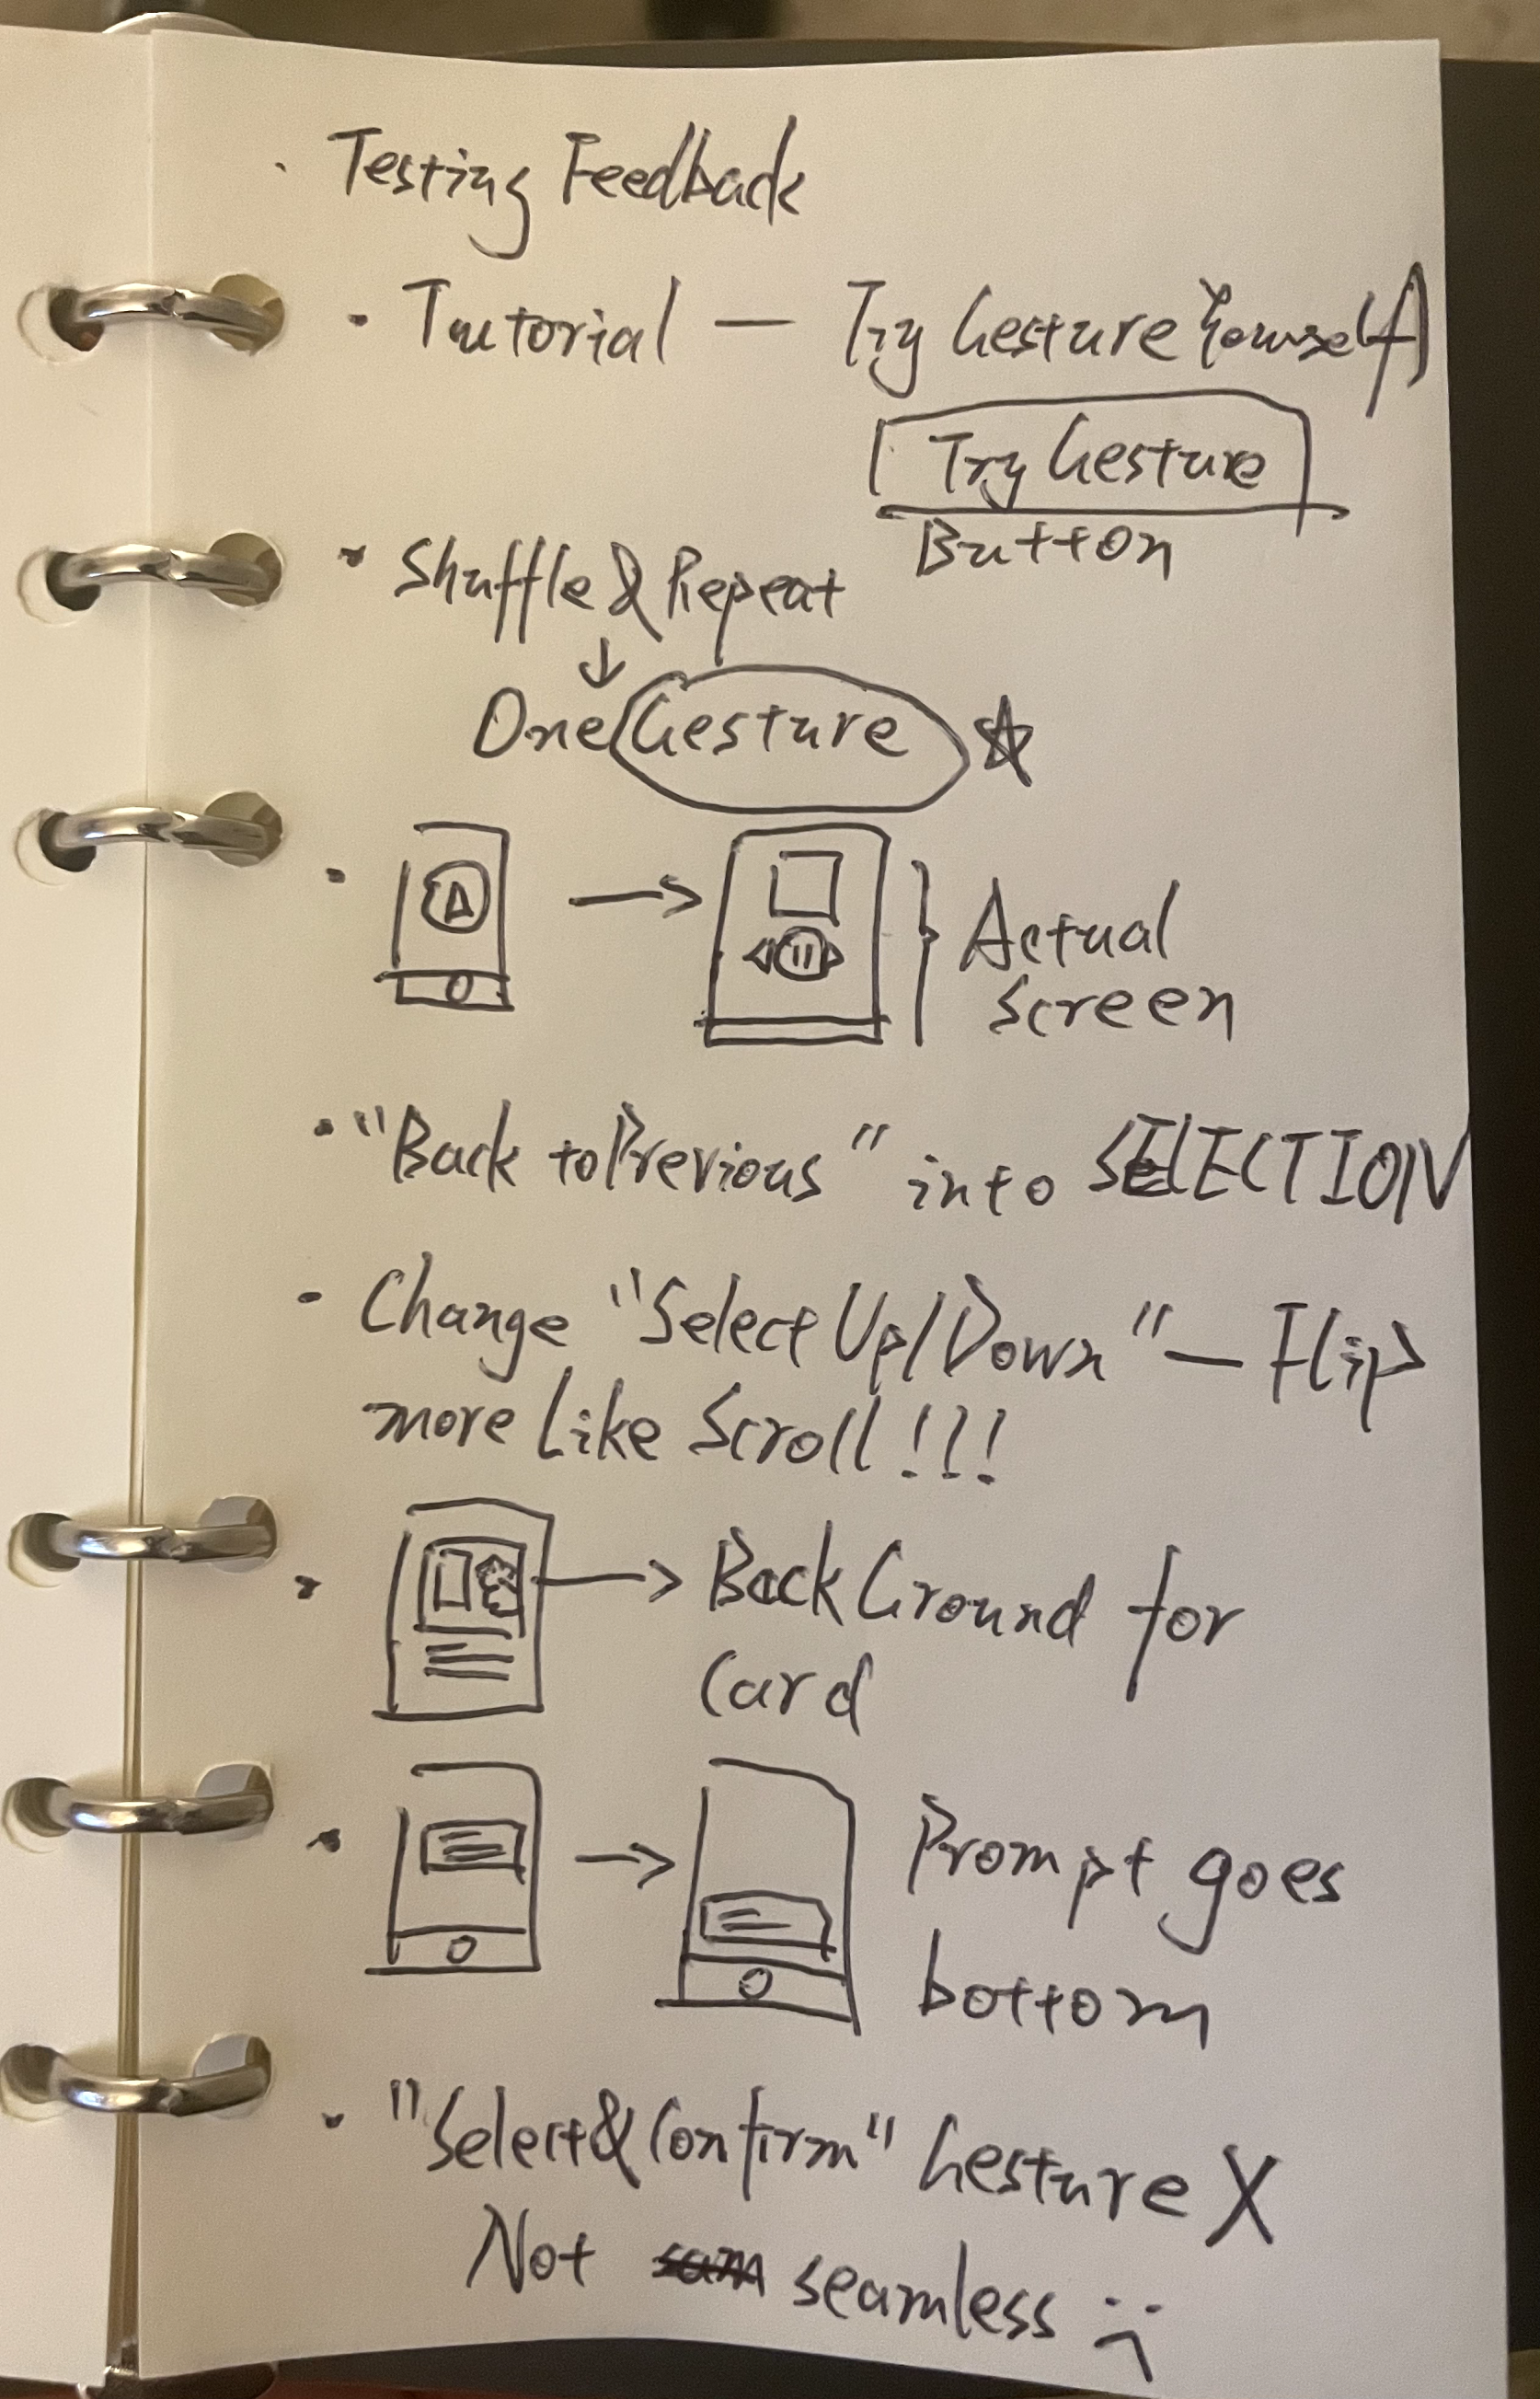 · Testing Feedback
· Tutorial — Try Gesture Yourself
Try Gesture
Button
· Shuffle & Repeat
↓
One Gesture ☆
· → } Actual
Screen
· "Back to Previous" into SELECTION
- Change "Select Up/Down" — Flip
more Like Scroll!!!
· → BackGround for
Card
· → Prompt goes
bottom
· "Select & Confirm" Gesture X
Not seamless :(